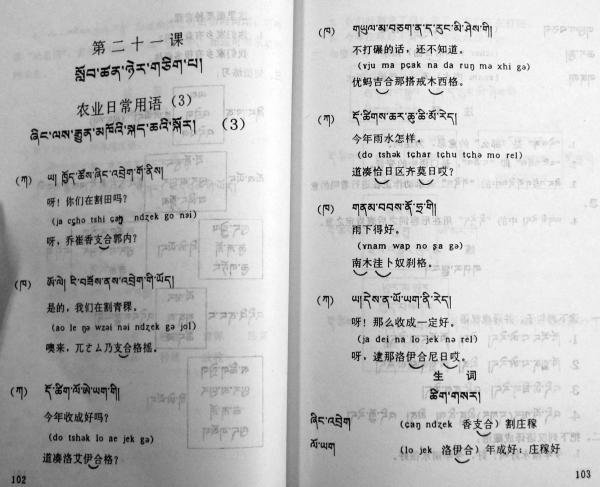 第二十一课
སློབ་ཚན་ཉེར་གཅིག་པ།
农业日常用语（3）
ཞིང་ལས་རྒྱུན་མཁོའི་སྐད་ཆའི་སྐོར། (3)
(ཀ) ཡ། ཁྱོད་ཚོས་ཞིང་འབྲེག་གོ་ནིས།
呀！你们在割田吗？
(ja cçho tshi çaŋ ndẓek go nəi)
呀，乔崔香支合郭内？
(ཁ) ཨོ་ལེ། ང་བཟོས་ནས་འབྲེག་གི་ཡོད།
是的，我们在割青稞。
(ao le ŋə wzəi nai ndẓek gə jol)
噢来，兀ㄜㄙ乃支合格摇。
(ཀ) ད་ཚིག་ལོ་ཨེ་ཡག་གི།
今年收成好吗？
(do tshak lo ae jek gə)
道凑洛艾伊合格？
102
(ཁ) གཡུལ་མ་བཅག་ན་ད་རུང་མི་ཤེས་གི།
不打碾的话，还不知道。
(vju ma pçak na da ruŋ mə xhi gə)
优蚂吉合那搭戒木西格。
(ཀ) ད་ཚིགས་ཆར་ཆུ་ཆི་མོ་རེད།
今年雨水怎样。
(do tshək tçhar tchu tchə mo rel)
道凑恰日区齐莫日哎？
(ཁ) གནམ་བབས་ནོ་ཧྲ་གི།
雨下得好。
(vnam wap no ṣa gə)
南木洼卜奴刹格。
(ཀ) ཡ། དེས་ན་ལོ་ཡག་ནི་རེད།
呀！那么收成一定好。
(ja dei na lo jek nə rel)
呀，逮那洛伊合尼日哎。
生 词
ཚིག་གསར།
ཞིང་འབྲེག (çaŋ ndẓek 香支合) 割庄稼
ལོ་ཡག (lo jek 洛伊合) 年成好；庄稼好
103